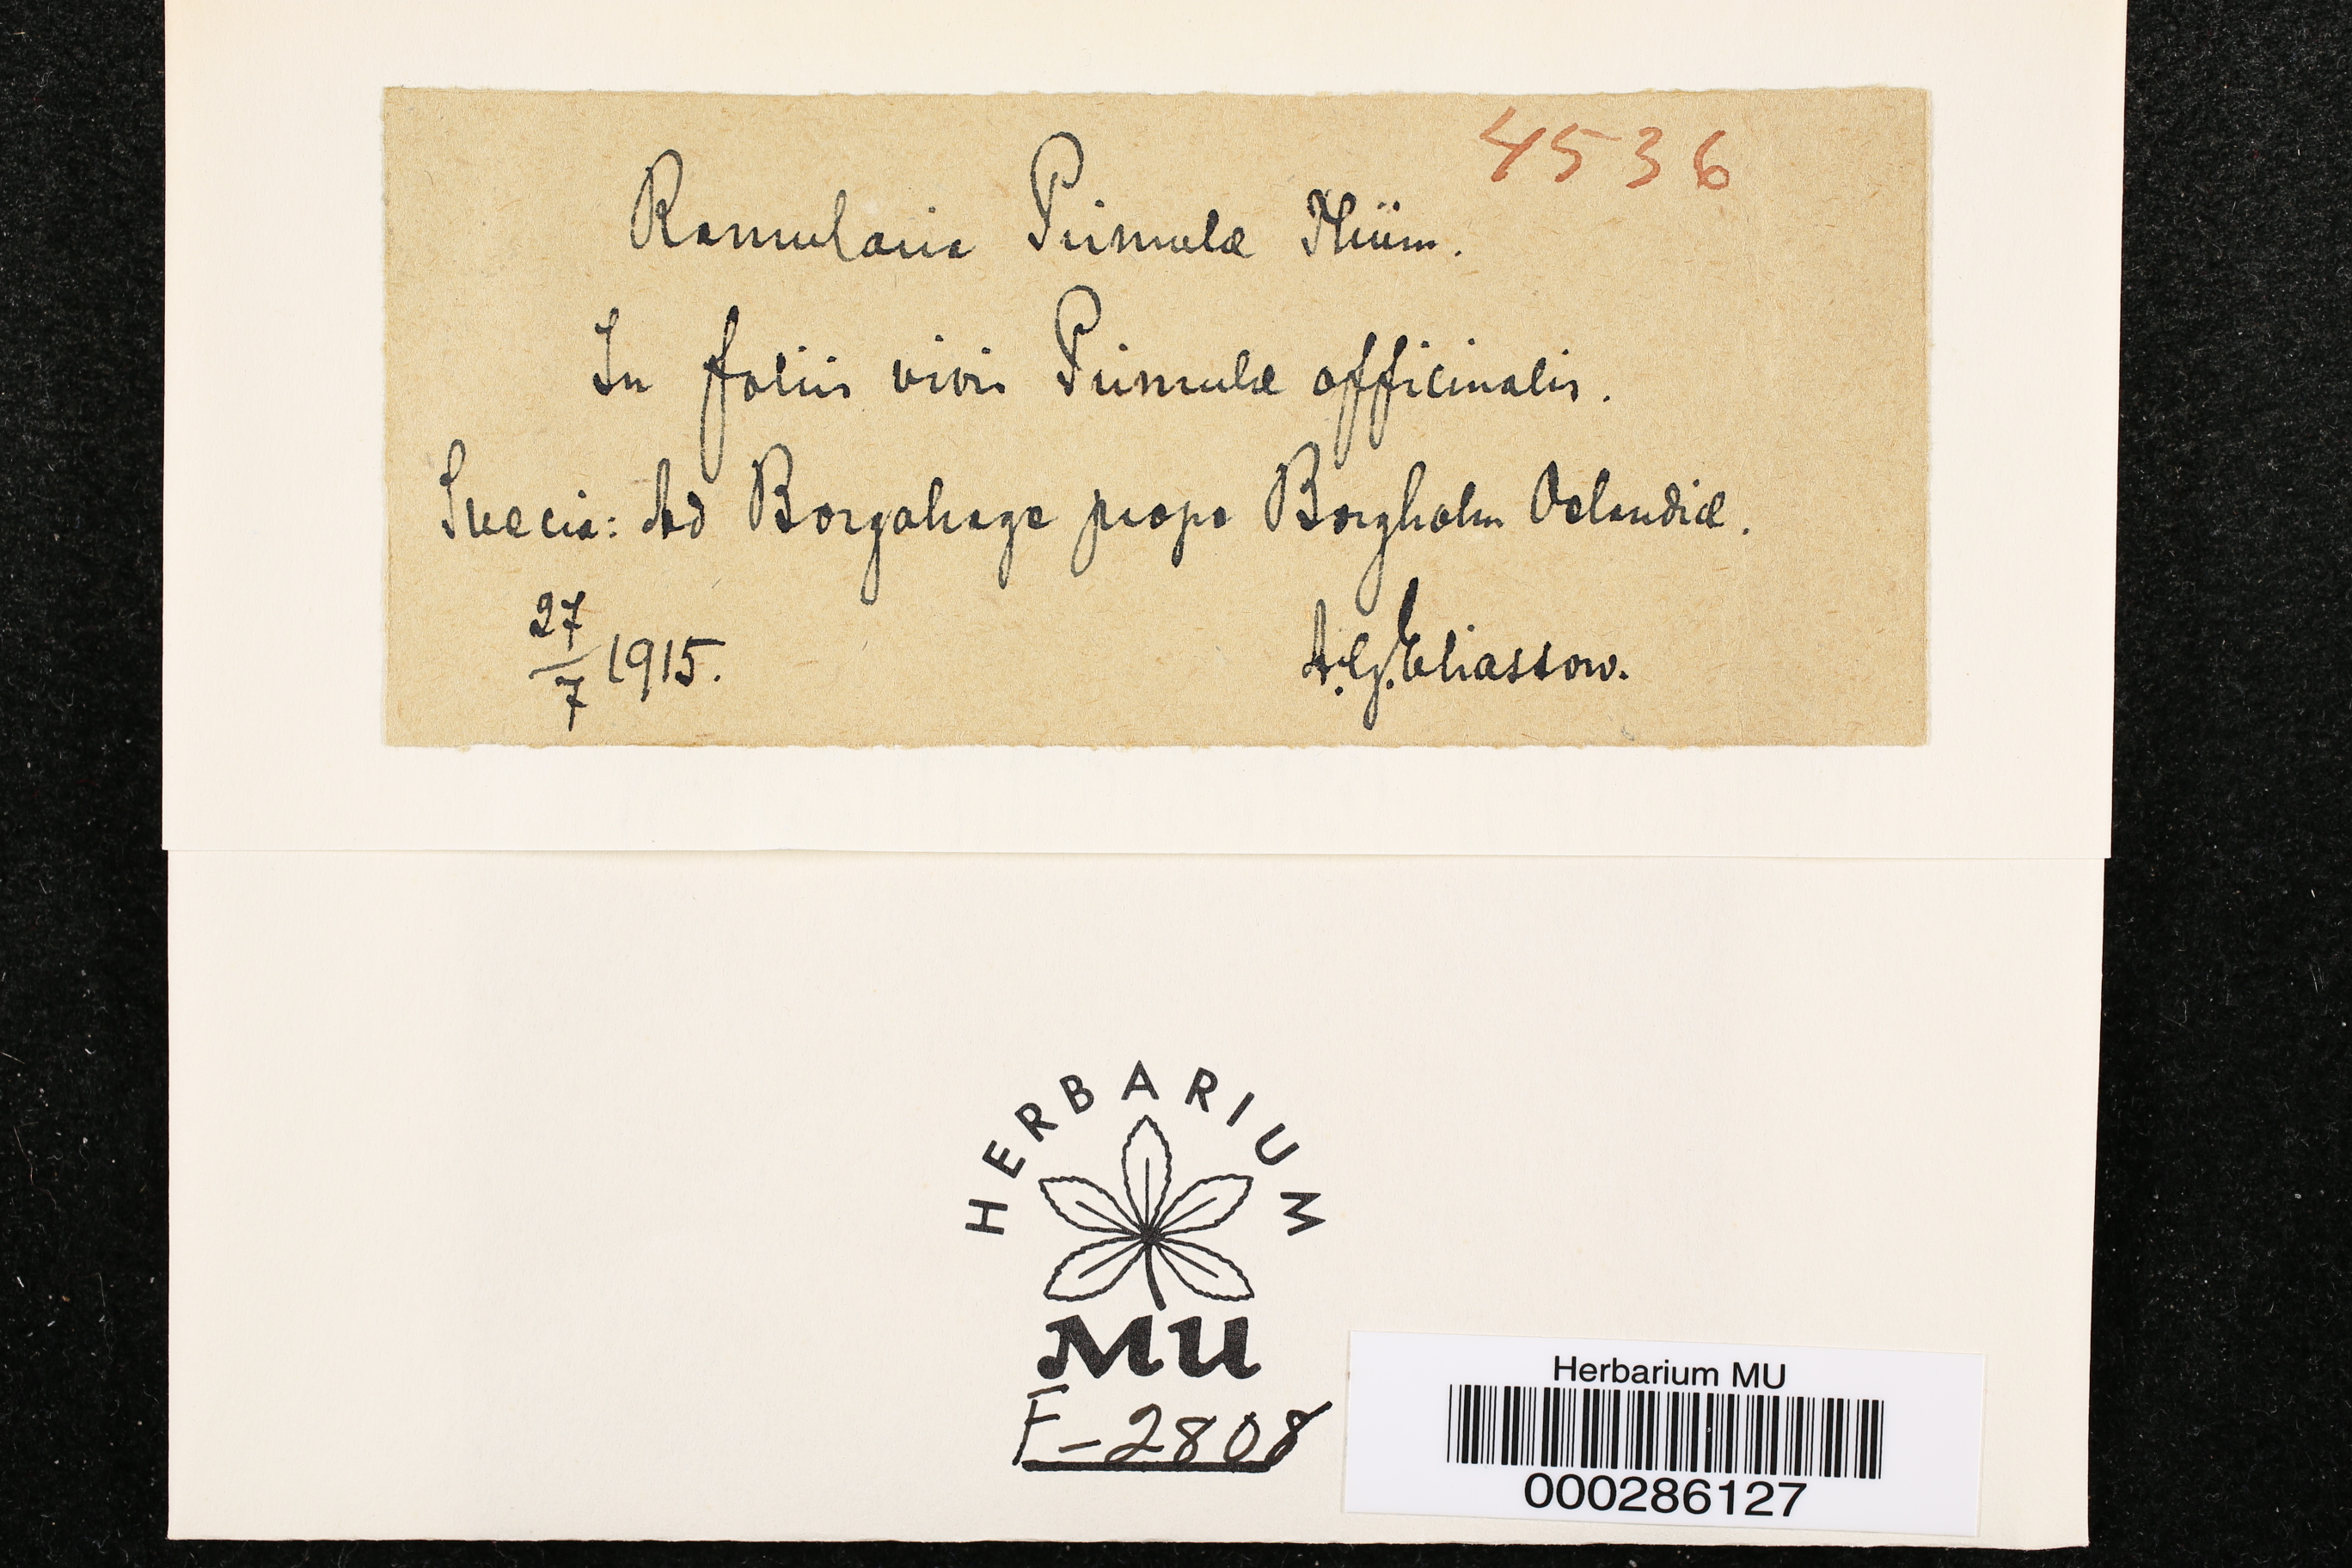 4536
Ramularia Primulæ Thüm.
In foliis vivis Primulæ officinalis.
Suecia: Ad Borgahage prope Borgholm Oelandiæ.
27/7 1915. A.G. Eliasson.
HERBARIUM
MU
F-2808
Herbarium MU
000286127